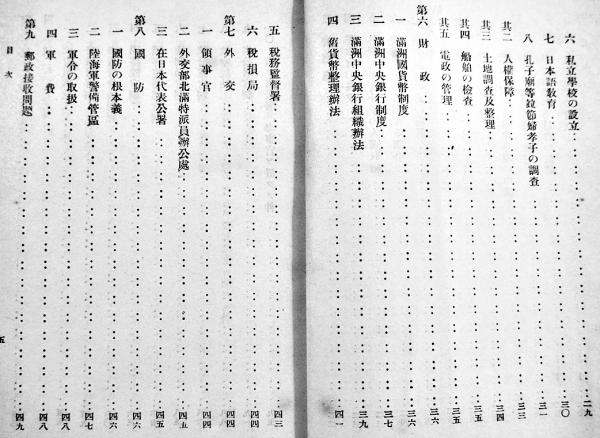 六 私立學校の設立 二九
七 日本語教育 三〇
八 孔子廟等竝節婦孝子の調査 三一
其二 人權保障 三三
其三 土地調査及整理 三四
其四 船舶の檢査 三五
其五 電政の管理 三五
第六 財政 三六
一 滿洲國貨幣制度 三六
二 滿洲中央銀行制度 三七
三 滿洲中央銀行組織辦法 三九
四 舊貨幣整理辦法 四一
五 稅務監督署 四三
六 稅損局 四四
第七 外交 四四
一 領事官 四四
二 外交部北滿特派員辦公處 四五
三 在日本代表公署 四五
第八 國防 四六
一 國防の根本義 四六
二 陸海軍警備管區 四七
三 軍令の取扱 四八
四 軍費 四八
第九 郵政接收問題 四九
目次
五